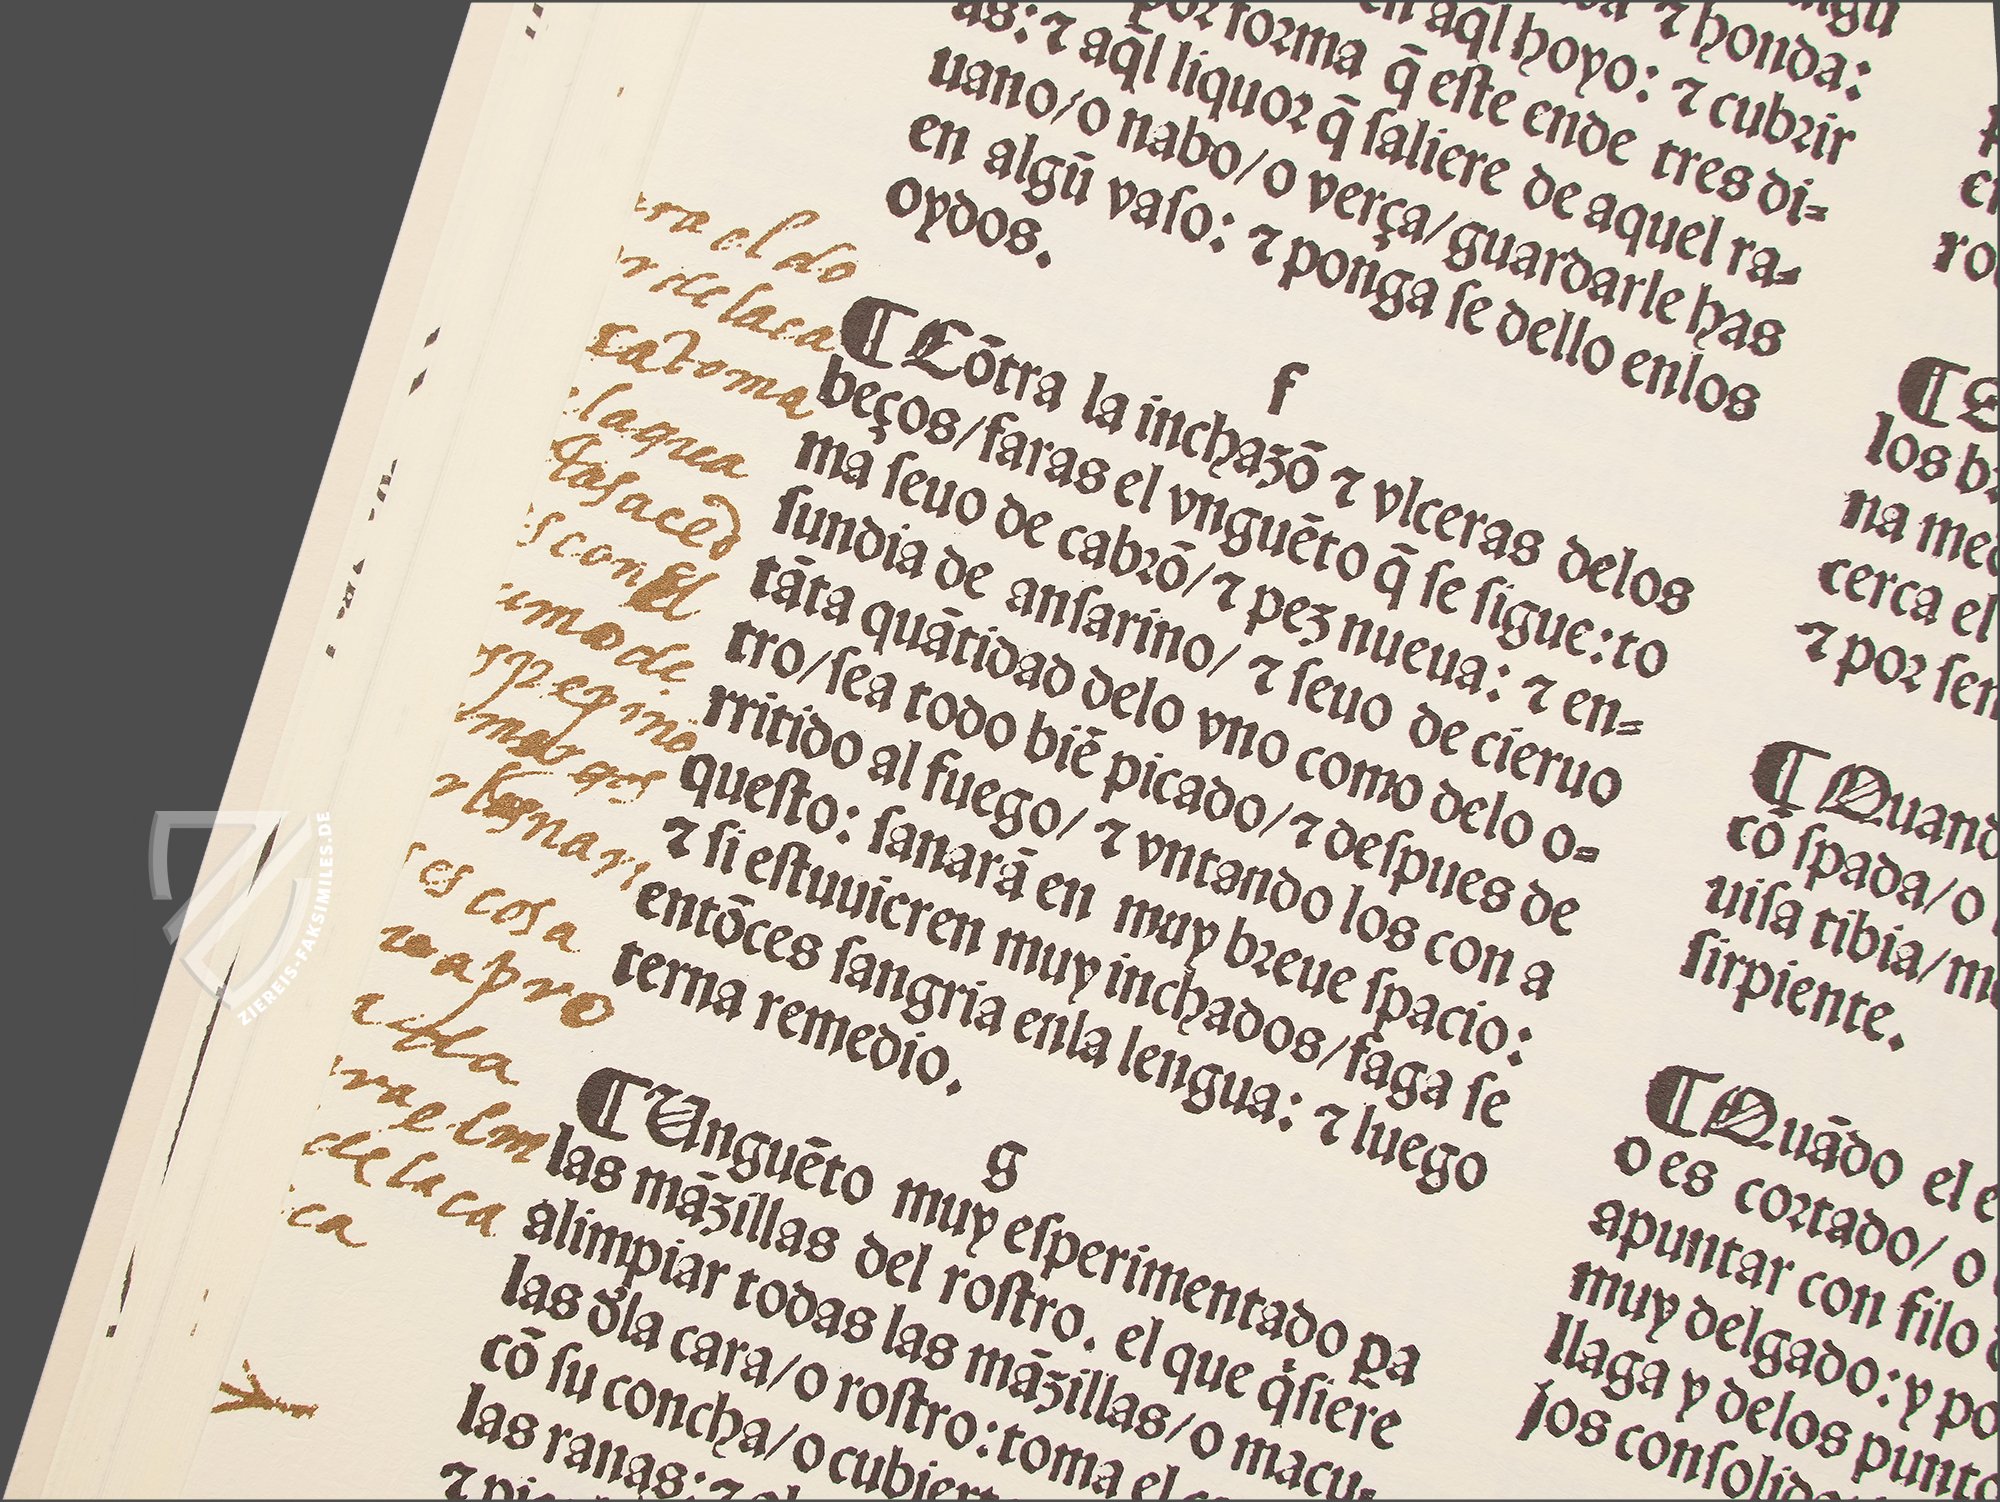 as: ⁊ aq̄l liquor q̄ saliere de aquel ra-
por forma q̄ este ende tres di-
en aql hoyo: ⁊ cubrir
⁊ honda:
uano/o nabo/o verça/guardarle has
en algũ vaso: ⁊ ponga se dello enlos
oydos.
f
¶ Cõtra la inchazõ ⁊ vlceras delos
beços/faras el vnguẽto q̄ se sigue: to
ma seuo de cabrõ/⁊ pez nueua: ⁊ en-
sundia de ansarino/ ⁊ seuo de cieruo
tãta quãtidad delo vno como delo o-
tro/sea todo biẽ picado/⁊ despues de
rritido al fuego/ ⁊ vntando los con a
questo: sanarã en muy breue spacio:
⁊ si estuuieren muy inchados/faga se
entõces sangria enla lengua: ⁊ luego
terna remedio.
g
¶ Unguẽto muy esperimentado pa
las mãzillas del rostro. el que q̇sierẽ
alimpiar todas las mãzillas/o macu-
las d̃la cara/o rostro: toma el
cõ su concha/o cubiert
las ranas: ⁊
ra el do
r de laca
ca toma
el agua
es con el
umo de
pepino
amargos
es cosa
ra el
de la ca
ca
los b
na med
cerca el
⁊ por sen
¶ Quand
cõ spada/o
uisa tibia/m
sirpiente.
¶ Quãdo el e
o es cortado/ o
apuntar con filo
muy delgado: y po
llaga y delos punto
jos consolid
ZIEREIS-FAKSIMILES.DE